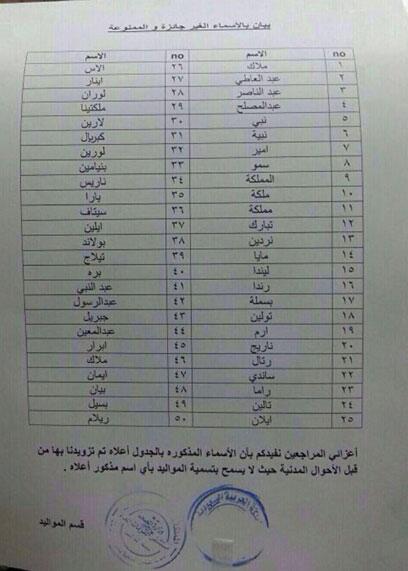 بيان بالأسماء الغير جائزة و الممنوعة
no الاسم no الاسم
١ ملاك ٢٦ الاس
٢ عبد العاطي ٢٧ اينار
٣ عبد الناصر ٢٨ لوران
٤ عبدالمصلح ٢٩ ملكتينا
٥ نبي ٣٠ لارين
٦ نبية ٣١ كبريال
٧ امير ٣٢ لورين
٨ سمو ٣٣ بنيامين
٩ المملكة ٣٤ ناريس
١٠ ملكة ٣٥ يارا
١١ مملكة ٣٦ سيتاف
١٢ تبارك ٣٧ ايلين
١٣ نردين ٣٨ بولاند
١٤ مايا ٣٩ تيلاج
١٥ ليندا ٤٠ بره
١٦ رندا ٤١ عبد النبي
١٧ بسملة ٤٢ عبدالرسول
١٨ تولين ٤٣ جبريل
١٩ ارم ٤٤ عبدالمعين
٢٠ ناريج ٤٥ ابرار
٢١ رتال ٤٦ ملاك
٢٢ ساندي ٤٧ ايمان
٢٣ راما ٤٨ بيان
٢٤ تالين ٤٩ بسيل
٢٥ ايلان ٥٠ ريلام
أعزائي المراجعين نفيدكم بأن الأسماء المذكوره بالجدول أعلاه تم تزويدنا بها من
قبل الأحوال المدنية حيث لا يسمح بتسمية المواليد بأي اسم مذكور أعلاه .
قسم المواليد